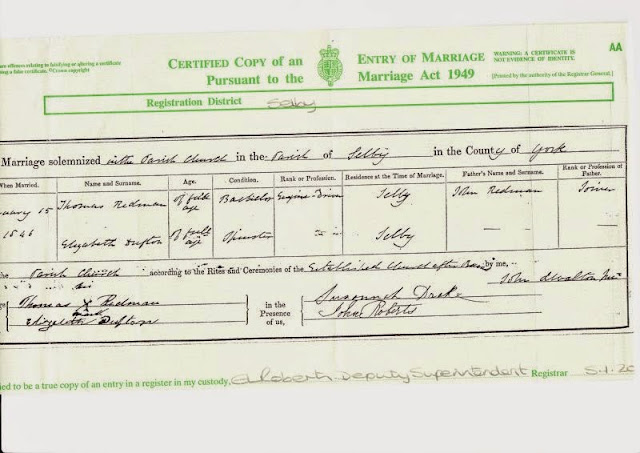 are offences relating to falsifying or altering a certificate
ng a false certificate. ©Crown copyright
CERTIFIED COPY of an ENTRY OF MARRIAGE
Pursuant to the Marriage Act 1949
WARNING: A CERTIFICATE IS
NOT EVIDENCE OF IDENTITY.
AA
[Printed by the authority of the Registrar General.]
Registration District Selby
Marriage solemnized in the Parish Church in the Parish of Selby in the County of York
When Married. Name and Surname. Age. Condition. Rank or Profession. Residence at the Time of Marriage. Father's Name and Surname. Rank or Profession of Father.
uary 15 Thomas Redman Of full age Bachelor Engine Driver Selby John Redman Joiner
1846 Elizabeth Dufton Of full age Spinster Selby
he Parish Church according to the Rites and Ceremonies of the Established Church after Banns by me,
Thomas X Redman
mark
Elizabeth Dufton
in the Presence of us,
Susannah Drake
John Roberts
ied to be a true copy of an entry in a register in my custody, Deputy Superintendent Registrar